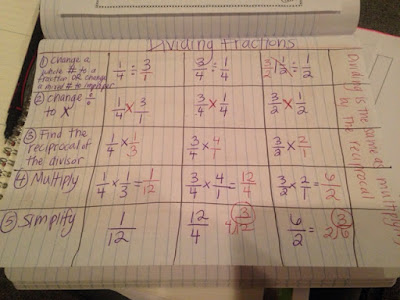 Dividing Fractions
① Change a
whole # to a
fraction OR change
a mixed # to improper
1/4 ÷ 3/1
3/4 ÷ 1/4
3/2 1 1/2 ÷ 1/2
② Change ÷
to X
1/4 x 3/1
3/4 x 1/4
3/2 x 1/2
③ Find the
reciprocal of
the divisor
1/4 x 1/3
3/4 x 4/1
3/2 x 2/1
④ Multiply
1/4 x 1/3 = 1/12
3/4 x 4/1 = 12/4
3/2 x 2/1 = 6/2
⑤ Simplify
1/12
12/4
3
4)12
6/2 =
3
2)6
Dividing is the same as multiplying
by the reciprocal